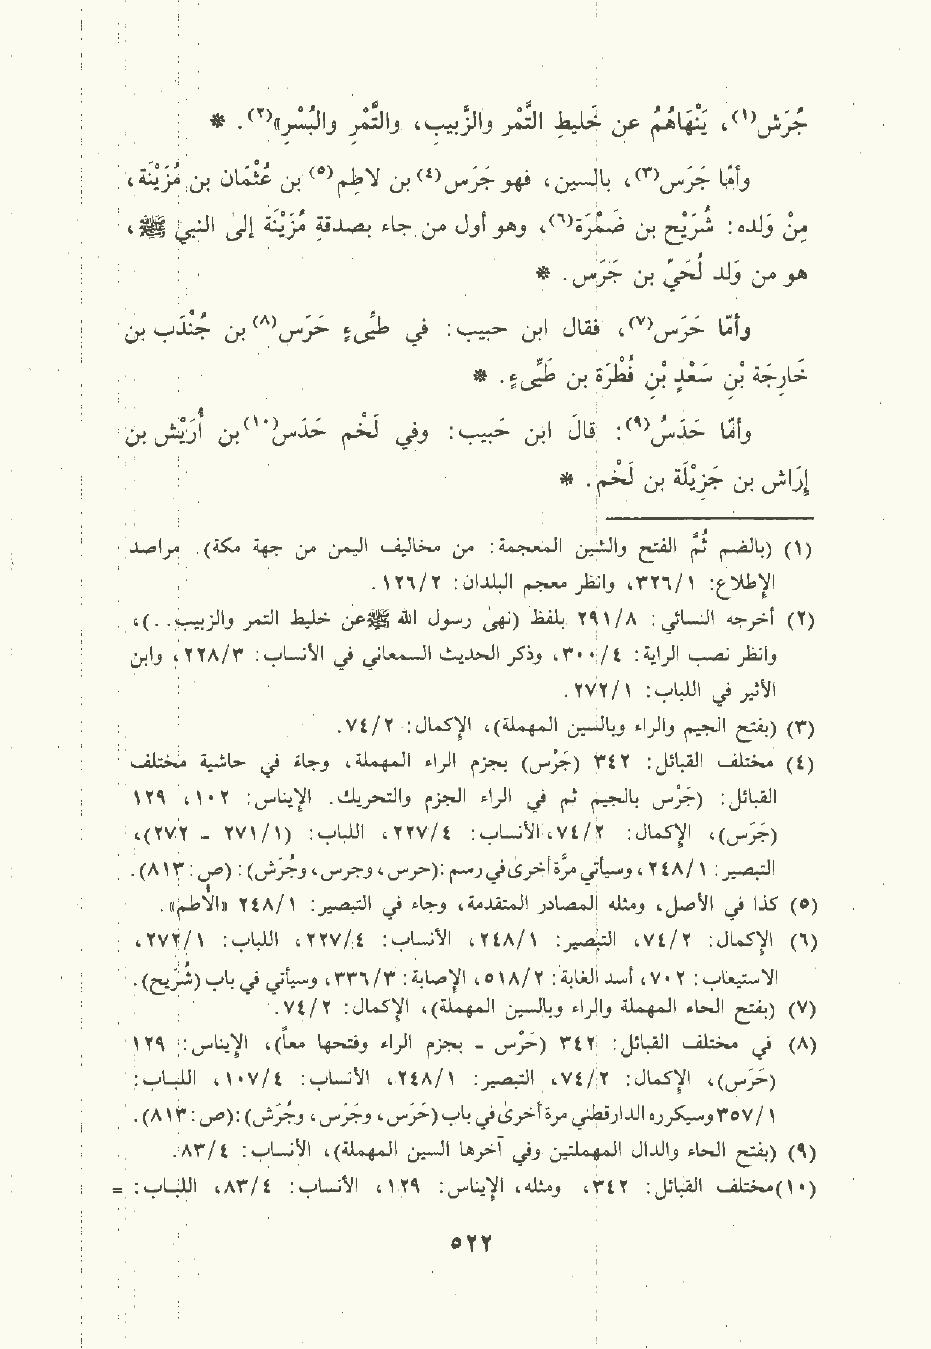 جُرَش(١)، يَنْهَاهُمُ عن خَليطِ التَّمْر والزَّبيبِ، والتَّمْرِ والبُسْرِ»(٢). *
وأمّا جَرَس(٣)، بالسين، فهو جَرَس(٤) بن لاطِم(٥) بن عُثْمَان بن مُزَيْنَة،
مِنْ وَلده: شُرَيْح بن ضَمْرَة(٦)، وهو أول من جاء بصدقةِ مُزَيْنَة إلى النبي ﷺ،
هو من وَلد لُحَيِّ بن جَرَس. *
وأمّا حَرَس(٧)، فقال ابن حبيب: في طيِّىءٍ حَرَس(٨) بن جُنْدَب بن
خَارِجَة بْنِ سَعْدِ بْنِ فُطْرَة بن طَيِّىءٍ. *
وأمّا حَدَسُ(٩): قالَ ابن حَبيب: وفي لَخْم حَدَس(١٠) بن أُرَيْش بن
إرَاش بن جَزِيْلَة بن لَخْم. *
(١) (بالضم ثُمَّ الفتح والشين المعجمة: من مخاليف اليمن من جهة مكة). مراصد
الإطلاع: ٣٢٦/١، وانظر معجم البلدان: ١٢٦/٢.
(٢) أخرجه النسائي: ٢٩١/٨ بلفظ (نهىٰ رسول الله ﷺ عن خليط التمر والزبيب..)،
وانظر نصب الراية: ٣٠٠/٤، وذكر الحديث السمعاني في الأنساب: ٢٢٨/٣، وابن
الأثير في اللباب: ٢٧٢/١.
(٣) (بفتح الجيم والراء وبالسين المهملة)، الإكمال: ٧٤/٢.
(٤) مختلف القبائل: ٣٤٢ (جَرْس) بجزم الراء المهملة، وجاء في حاشية مختلف
القبائل: (جَرْس بالجيم ثم في الراء الجزم والتحريك. الإيناس: ١٠٢، ١٢٩
(جَرَس)، الإكمال: ٧٤/٢، الأنساب: ٢٢٧/٤، اللباب: (٢٧١/١ - ٢٧٢)،
التبصير: ٢٤٨/١، وسيأتي مرَّة أخرىٰ في رسم: (حرس، وجرس، وجُرَش): (ص: ٨١٣).
(٥) كذا في الأصل، ومثله المصادر المتقدمة، وجاء في التبصير: ٢٤٨/١ «الأطم».
(٦) الإكمال: ٧٤/٢، التبصير: ٢٤٨/١، الأنساب: ٢٢٧/٤، اللباب: ٢٧٢/١،
الاستيعاب: ٧٠٢، أسد الغابة: ٥١٨/٢، الإصابة: ٣٣٦/٣، وسيأتي في باب (شُرَيح).
(٧) (بفتح الحاء المهملة والراء وبالسين المهملة)، الإكمال: ٧٤/٢.
(٨) في مختلف القبائل: ٣٤٢ (حَرْس - بجزم الراء وفتحها معاً)، الإيناس: ١٢٩
(حَرَس)، الإكمال: ٧٤/٢، التبصير: ٢٤٨/١، الأنساب: ١٠٧/٤، اللباب:
٣٥٧/١ وسيكرره الدارقطني مرة أخرىٰ في باب (حَرَس، وجَرَس، وجُرَش): (ص: ٨١٣).
(٩) (بفتح الحاء والدال المهملتين وفي آخرها السين المهملة)، الأنساب: ٨٣/٤.
(١٠) مختلف القبائل: ٣٤٢، ومثله، الإيناس: ١٢٩، الأنساب: ٨٣/٤، اللباب: =
٥٢٢